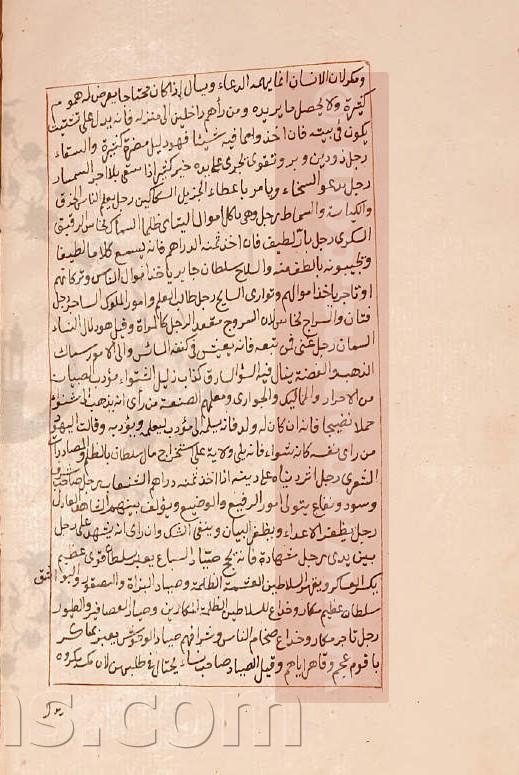 ومكرلان الانسان انما يهمه الدعاء وسال اذا كان محتاجا يعرض له هموم
كثيرة ولا يحصل ما يريده ومن رأهم داخلين الى منزله فانه يدل على تفتيت
يكون فى بيته فان اخذوا مما فيه شيئا فهو دليل مضرة كثيرة والسقاء
رجل ذو دين وبر وتقوى يجرى على يده خير كثير اذا سقى بلا اجر السمسار
رجل يدعو السخاء ويامر باعطاء الجزيل السكاكين رجل يعلم الناس الحذق
والكياسة والسماط رجل وهى ياكل اموال اليتامى ظلما السماكى
السكرى رجل بار لطيف فان اخذ ثمنه الدراهم فانه يسمع كلاما لطيفا
ويجيبونه بالطف منه والسلاح سلطان جاير ياخذ اموال الناس
او تاجر ياخذ اموالهم ويوارى السايح رجل طالب العلم وامور الملوك الساحر رجل
فتان والسراج نخاس لان السروج مقعد الرجل كالمراة وقيل هو دلال النساء
السمان رجل غنى فمن تبعه فانه يعيش فى كنفه السائس والى الامور سماك
الذهب والفضة ينال فيه السارق كذاب زليل الشواء مؤدب الصبيان
من الاحرار والمماليك والجوارى ومعلمهم الصنعة من رأى انه يذهب الى شواء
حملا نضيجا فانه ان كان له ولد فانه يسلمه الى مؤدب يعلمه ويؤدبه وقالت اليهود
من راى نفسه كانه شواء فانه يلى ولاية على استخراج مال سلطان بالظلم
الشعرى رجل اثر دنياه على دينه اذا اخذ ثمنه دراهم رجل صاحب
وسود ونفاع يتولى امور الرفيع والوضيع ويؤلف بينهم الشاهد العادل
رجل يظفر الاعداء ويظفر البيان وينفى الشك وان راى انه يشهد على رجل
بين يدى رجل شهادة فانه صياد السباع يعبر سلطانا قوى عظيم
يكسر العساكر ويقهر السلاطين الغشمة الظلمة وصياد البزاة والصقور والبواشق
سلطان عظيم مكار وخداع للسلاطين الظلمة المكارين وصياد العصافير والطيور
رجل تاجر مكار وخداع ضخام الناس وشرافهم صياد الوحوش يعبر بماكر
باقوام عجم وقاهر اياهم وقيل الصياد صاحب نساء يحتال فى طلبهن لان
ns.com